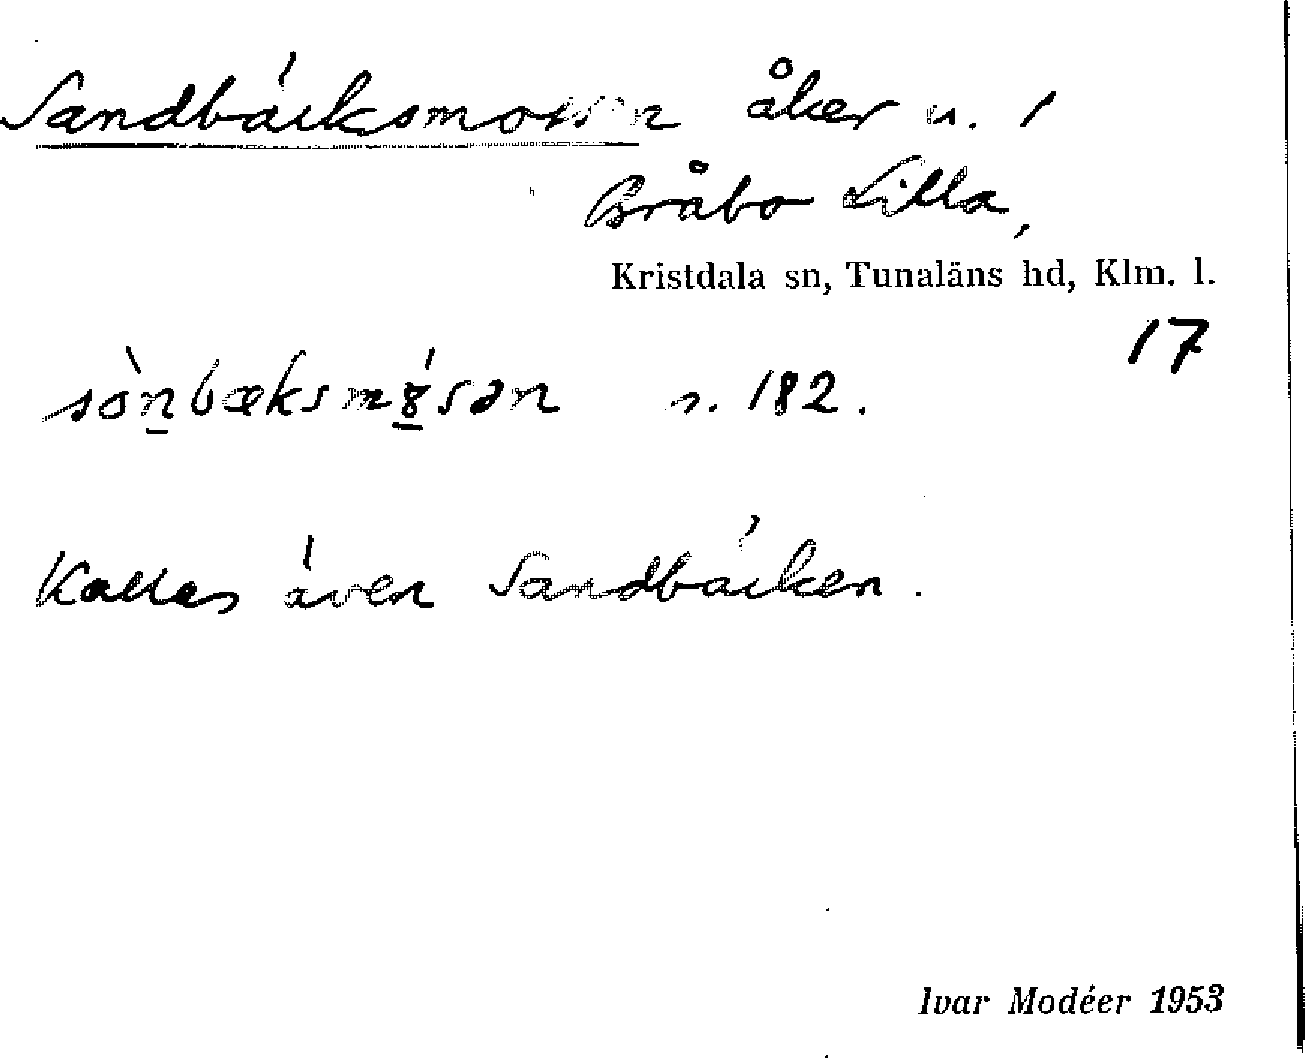 Sandbäcksmossen åker u. 1
Bråbo Lilla,
Kristdala sn, Tunaläns hd, Klm. l.
17
sònbæksmósən s. 182.
Kallas även Sandbäcken.
Ivar Modéer 1953